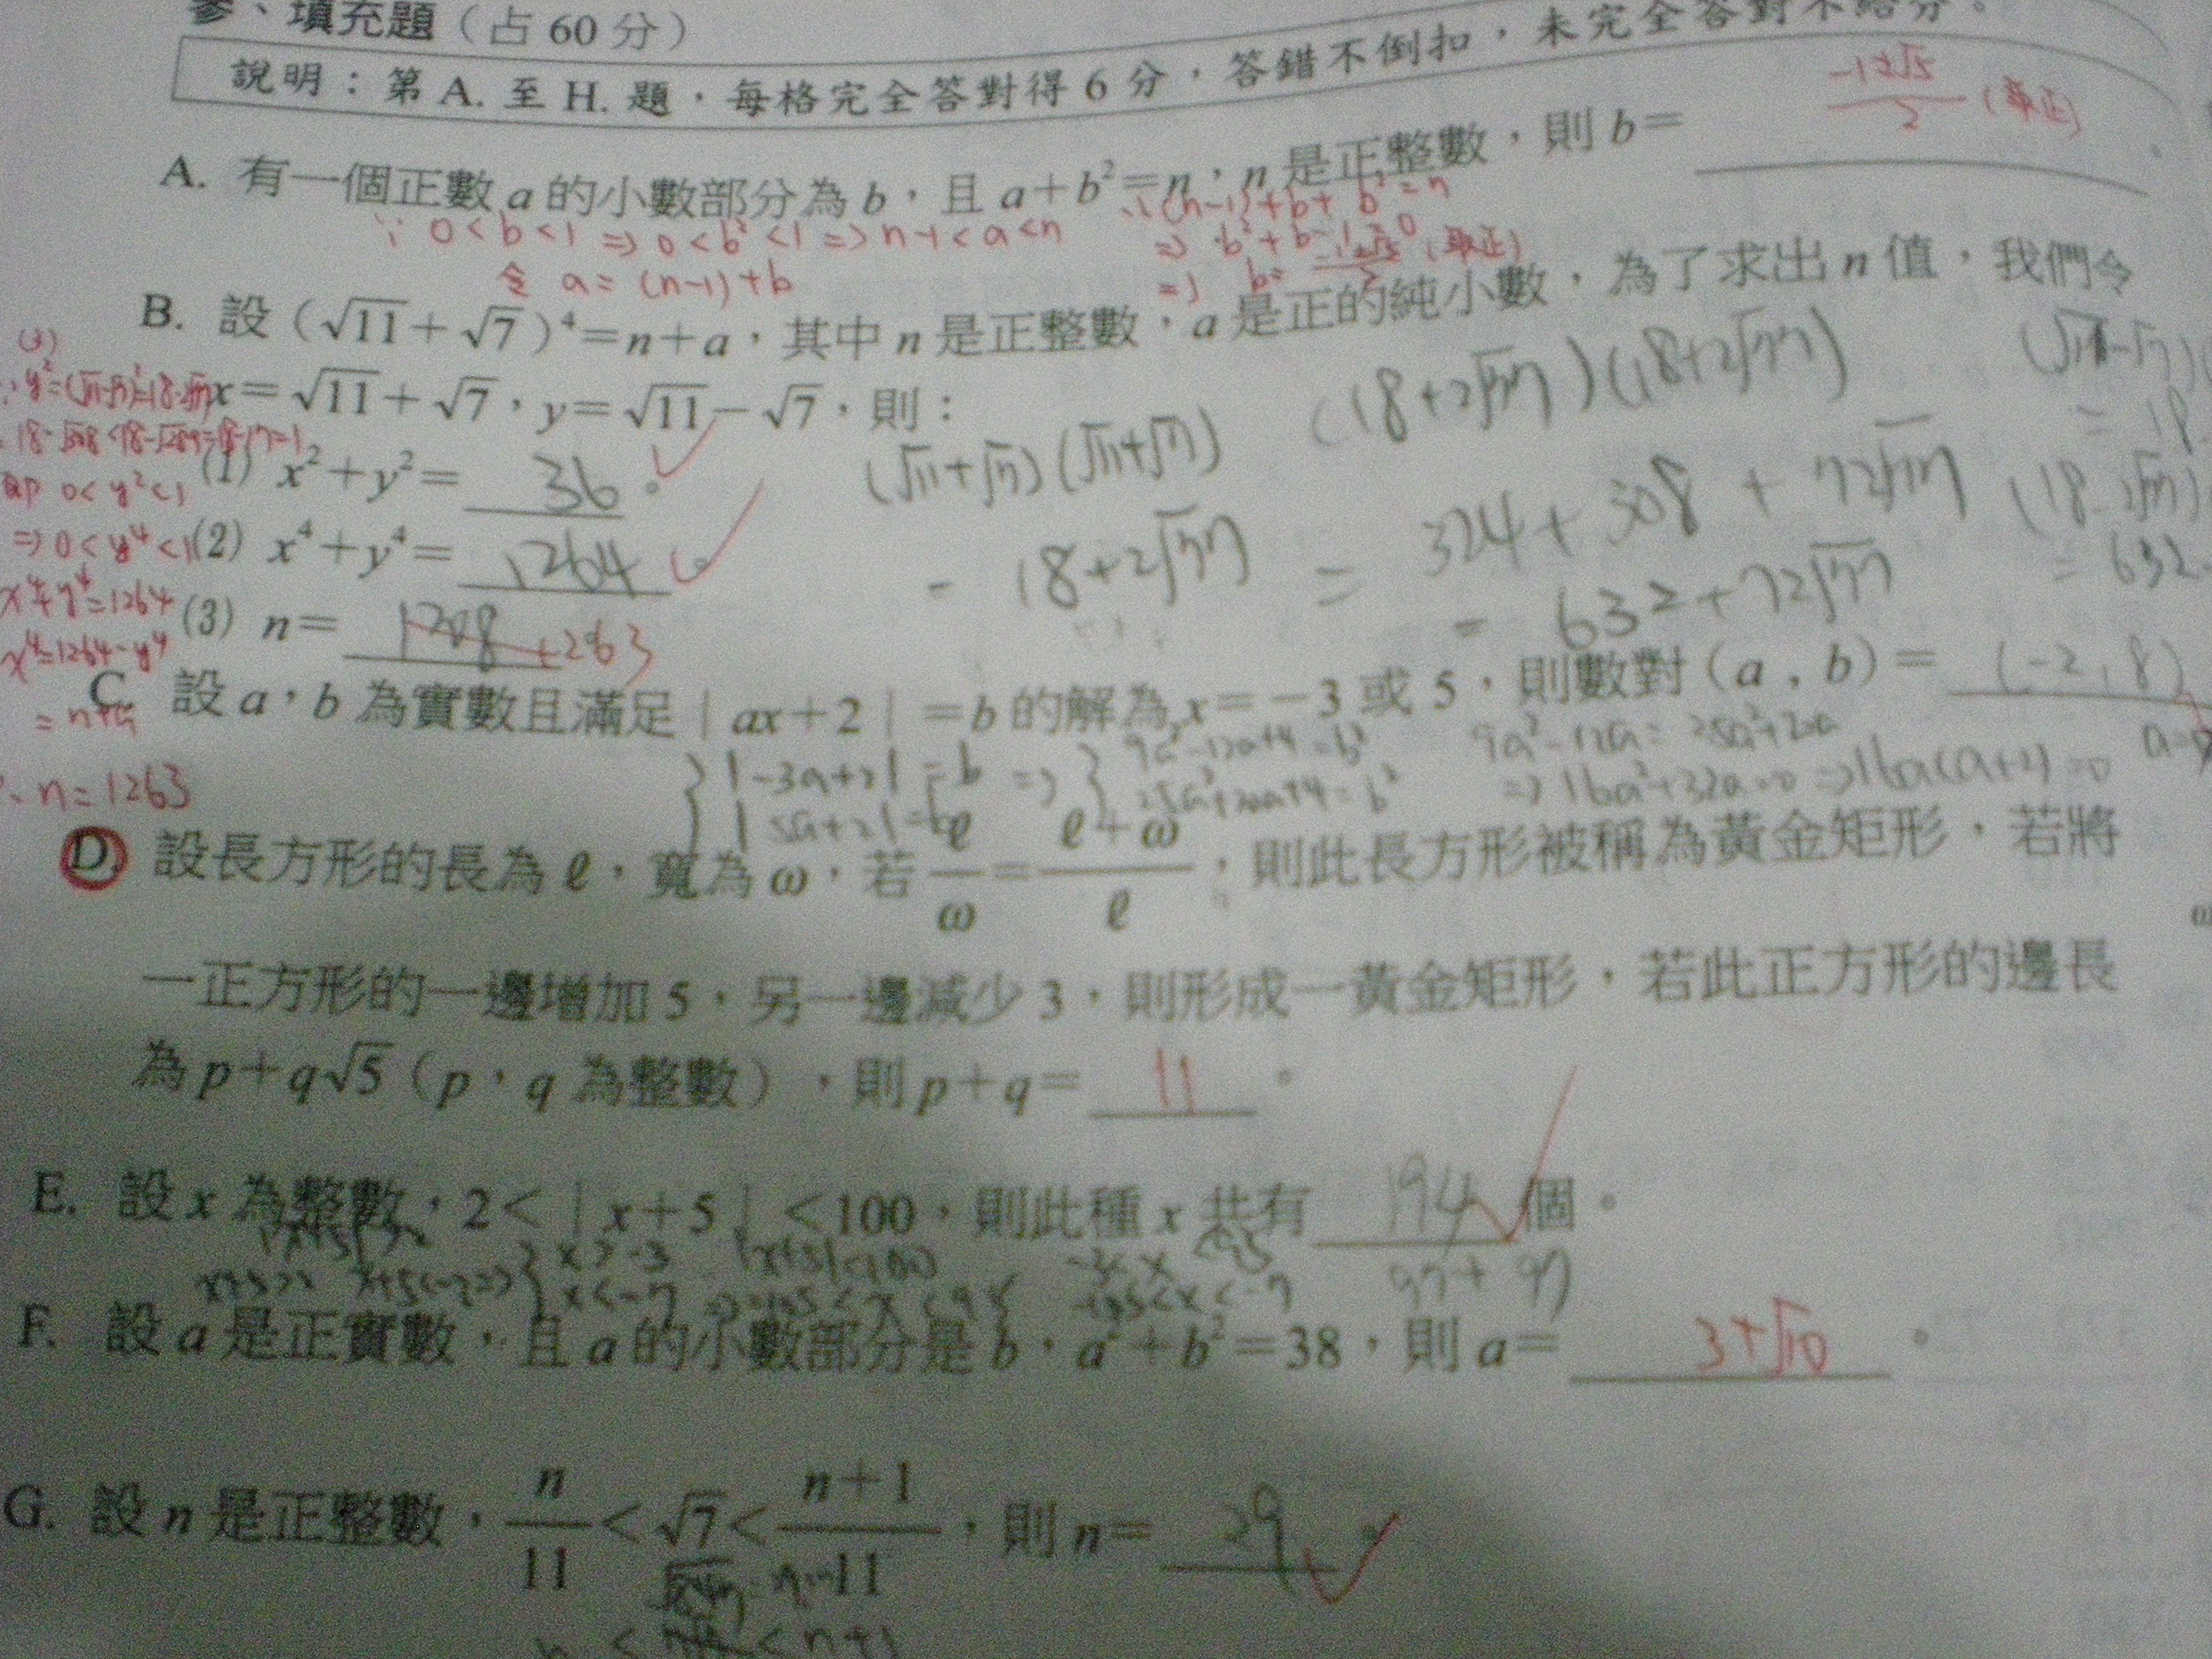 參、填充題(占 60 分)
說明:第 A. 至 H. 題,每格完全答對得 6 分,答錯不倒扣,未完全答對不給分。
A. 有一個正數 a 的小數部分為 b,且 a+b²=n,n 是正整數,則 b= (-1±√5)/2 (取正)
∵ 0<b<1 ⇒ 0<b²<1 ⇒ n-1<a<n
∴ (n-1)+b+b²=n
⇒ b²+b-1=0
令 a=(n-1)+b
⇒ b= (-1±√5)/2 (取正)
B. 設 (√11+√7)⁴=n+a,其中 n 是正整數,a 是正的純小數,為了求出 n 值,我們令
x=√11+√7,y=√11-√7,則:
(1) x²+y²= 36 。
(2) x⁴+y⁴= 1264 。
(3) n= 1263
(√11+√7)(√11+√7)
= 18+2√77
(18+2√77)(18+2√77)
= 324+308+72√77
= 632+72√77
= 18
= 632
(3)
即 0<y²<1
⇒ 0<y⁴<1
x⁴+y⁴=1264
x⁴=1264-y⁴
= n+a
∴ n=1263
C. 設 a,b 為實數且滿足 | ax+2 | =b 的解為 x=-3 或 5,則數對 (a , b)= (-2, 8)
{ |-3a+2|=b
|5a+2|=b
⇒ { 9a²-12a+4=b²
25a²+20a+4=b²
9a²-12a=25a²+20a
⇒ 16a²+32a=0 ⇒ 16a(a+2)=0
D. 設長方形的長為 ℓ,寬為 ω,若 ℓ/ω = (ℓ+ω)/ℓ,則此長方形被稱為黃金矩形,若將
一正方形的一邊增加 5,另一邊減少 3,則形成一黃金矩形,若此正方形的邊長
為 p+q√5(p,q 為整數),則 p+q= 11 。
E. 設 x 為整數,2< | x+5 | <100,則此種 x 共有 194 個。
|x+5|>2
x+5>2 x+5<-2 ⇒ { x>-3
x<-7
|x+5|<100
⇒ -105<x<95
-3<x<95
-105<x<-7
97+97
F. 設 a 是正實數,且 a 的小數部分是 b,a²+b²=38,則 a= 3+√10 。
G. 設 n 是正整數,n/11 < √7 < (n+1)/11,則 n= 29 。